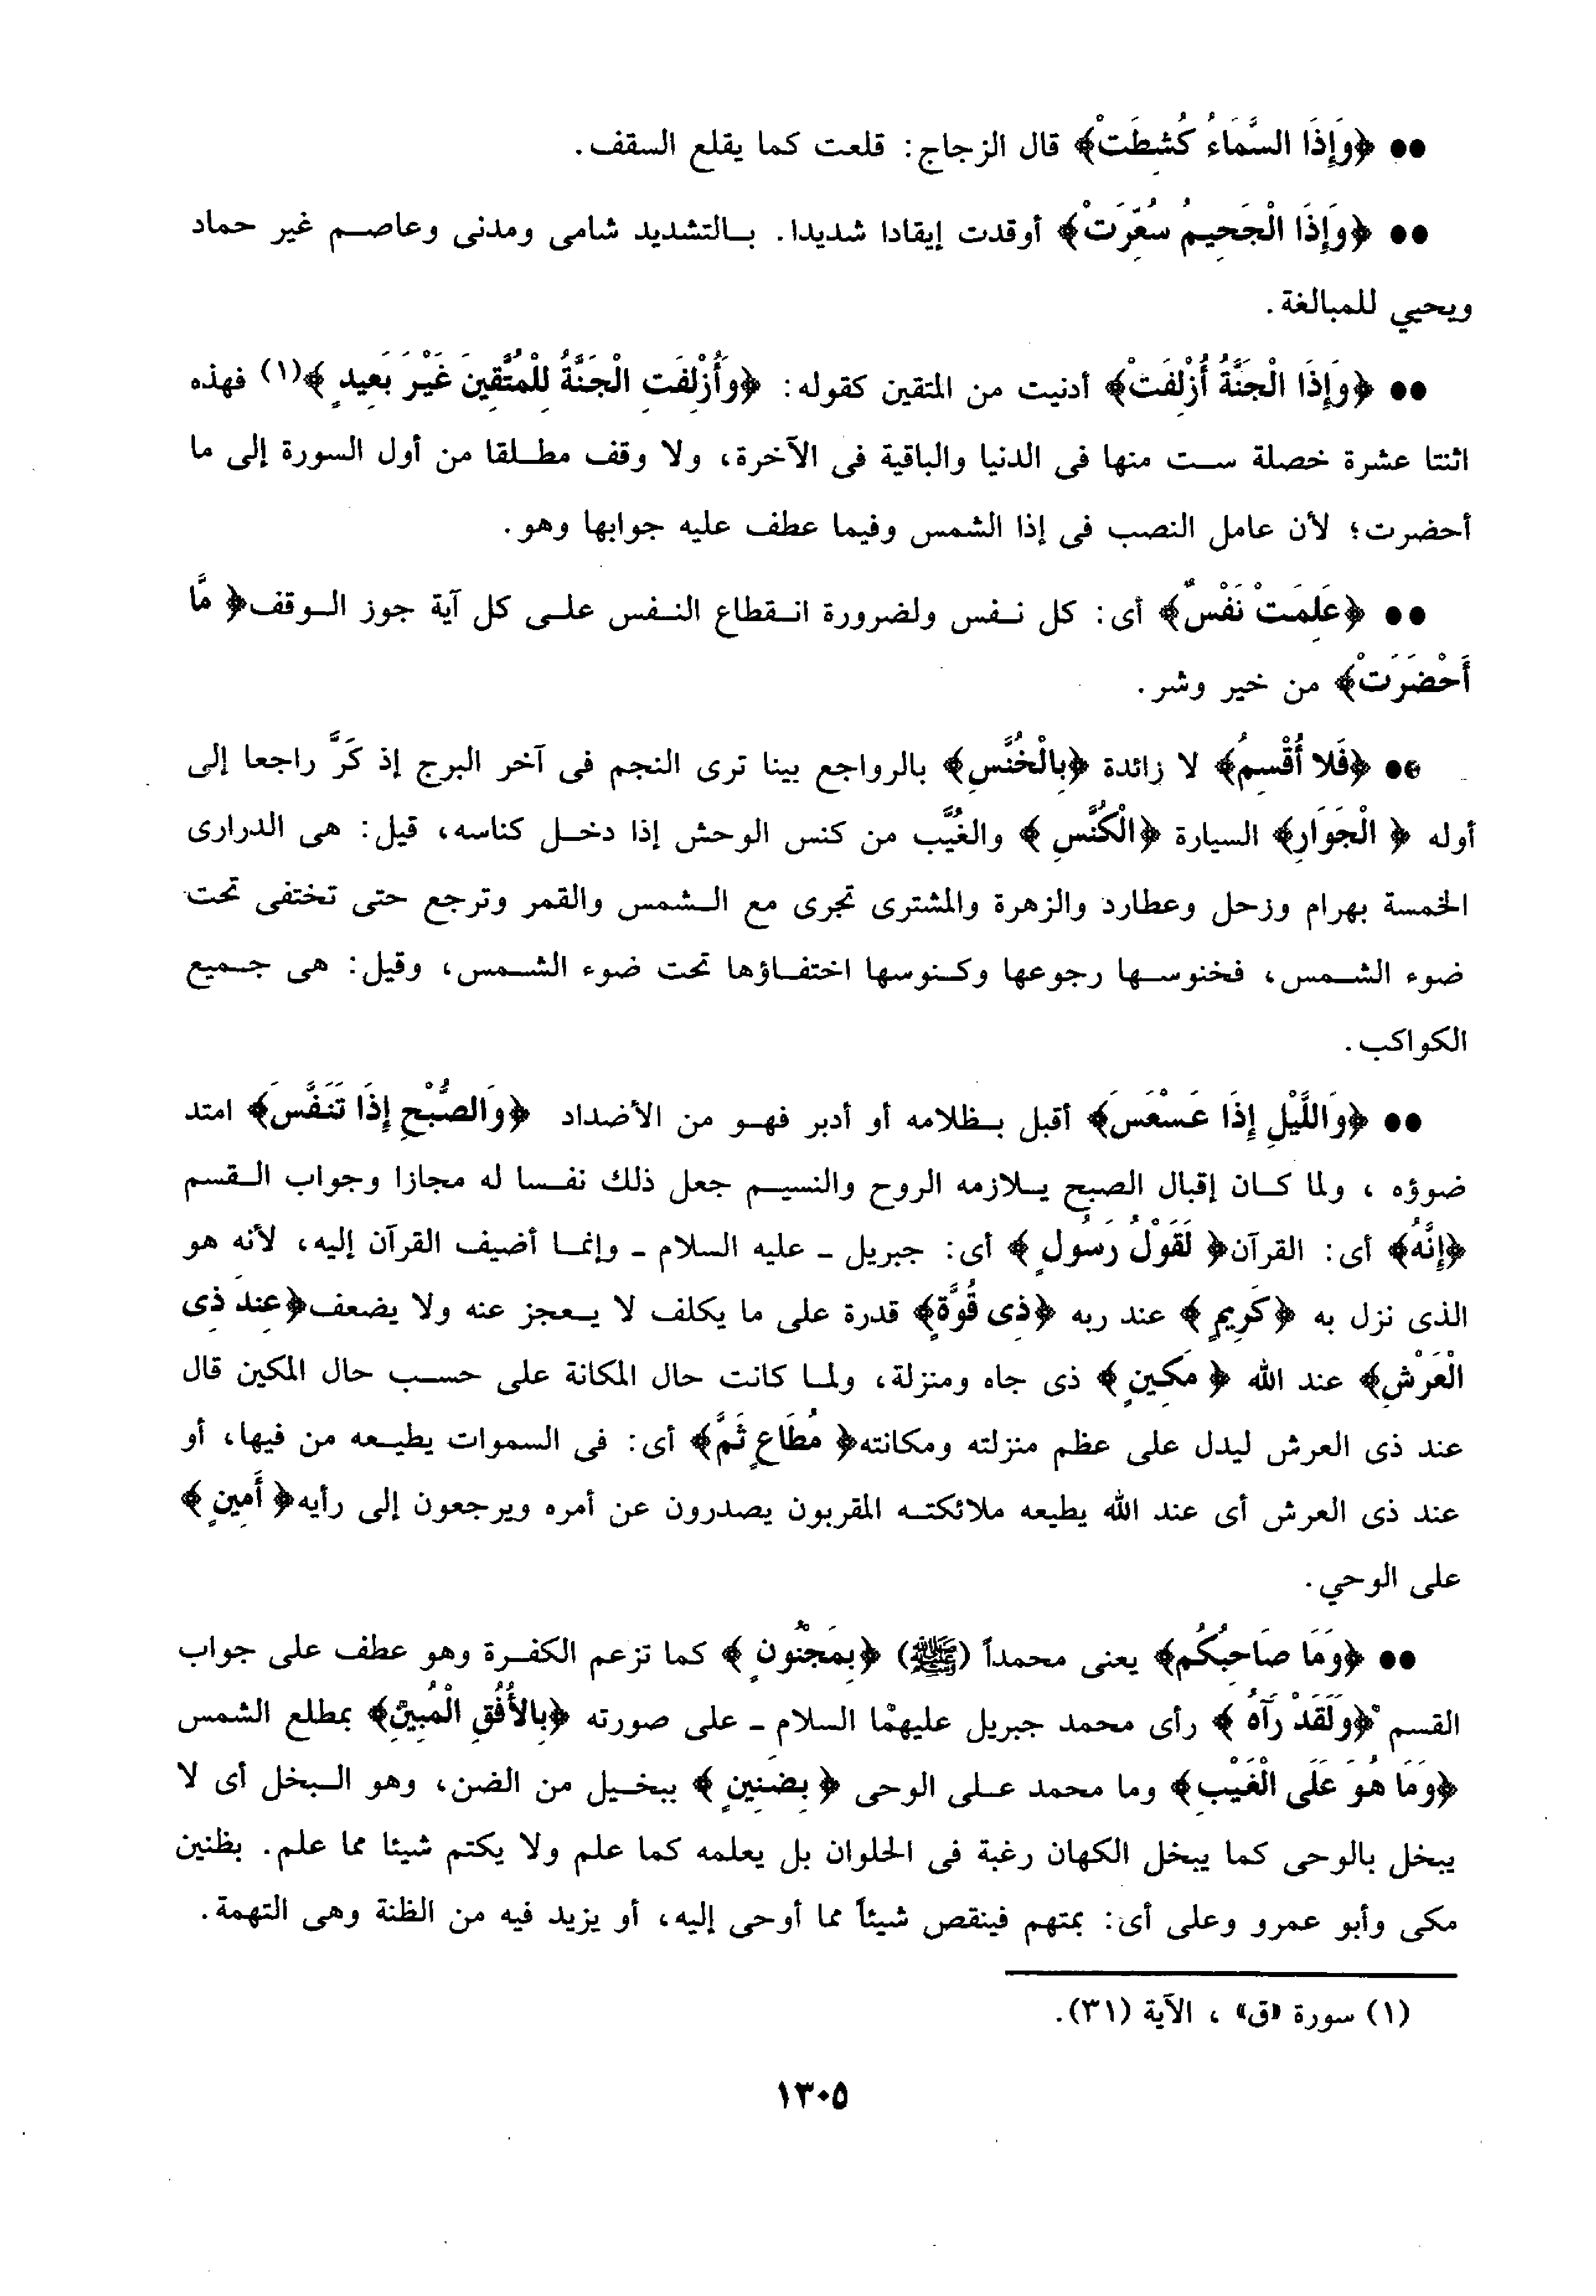 ●● ﴿وَإِذَا السَّمَاءُ كُشِطَتْ﴾ قال الزجاج: قلعت كما يقلع السقف.
●● ﴿وَإِذَا الْجَحِيمُ سُعِّرَتْ﴾ أوقدت إيقادا شديدا. بالتشديد شامى ومدنى وعاصم غير حماد
ويحيي للمبالغة.
●● ﴿وَإِذَا الْجَنَّةُ أُزْلِفَتْ﴾ أدنيت من المتقين كقوله: ﴿وَأُزْلِفَتِ الْجَنَّةُ لِلْمُتَّقِينَ غَيْرَ بَعِيدٍ﴾(١) فهذه
اثنتا عشرة خصلة ست منها فى الدنيا والباقية فى الآخرة، ولا وقف مطلقا من أول السورة إلى ما
أحضرت؛ لأن عامل النصب فى إذا الشمس وفيما عطف عليه جوابها وهو.
●● ﴿عَلِمَتْ نَفْسٌ﴾ أى: كل نفس ولضرورة انقطاع النفس على كل آية جوز الوقف﴿ مَّا
أَحْضَرَتْ﴾ من خير وشر.
●● ﴿فَلا أُقْسِمُ﴾ لا زائدة ﴿بِالْخُنَّسِ﴾ بالرواجع بينا ترى النجم فى آخر البرج إذ كَرَّ راجعا إلى
أوله ﴿ الْجَوَارِ﴾ السيارة ﴿الْكُنَّسِ ﴾ والغُيَّب من كنس الوحش إذا دخل كناسه، قيل: هى الدرارى
الخمسة بهرام وزحل وعطارد والزهرة والمشترى تجرى مع الشمس والقمر وترجع حتى تختفى تحت
ضوء الشمس، فخنوسها رجوعها وكنوسها اختفاؤها تحت ضوء الشمس، وقيل: هى جميع
الكواكب.
●● ﴿وَاللَّيْلِ إِذَا عَسْعَسَ﴾ أقبل بظلامه أو أدبر فهو من الأضداد ﴿وَالصُّبْحِ إِذَا تَنَفَّسَ﴾ امتد
ضوؤه ، ولما كان إقبال الصبح يلازمه الروح والنسيم جعل ذلك نفسا له مجازا وجواب القسم
﴿إِنَّهُ﴾ أى: القرآن﴿ لَقَوْلُ رَسُولٍ ﴾ أى: جبريل ـ عليه السلام ـ وإنما أضيف القرآن إليه، لأنه هو
الذى نزل به ﴿كَرِيمٍ ﴾ عند ربه ﴿ذِى قُوَّةٍ﴾ قدرة على ما يكلف لا يعجز عنه ولا يضعف﴿عِندَ ذِى
الْعَرْشِ﴾ عند الله ﴿ مَكِينٍ ﴾ ذى جاه ومنزلة، ولما كانت حال المكانة على حسب حال المكين قال
عند ذى العرش ليدل على عظم منزلته ومكانته﴿ مُطَاعٍ ثَمَّ﴾ أى: فى السموات يطيعه من فيها، أو
عند ذى العرش أى عند الله يطيعه ملائكته المقربون يصدرون عن أمره ويرجعون إلى رأيه﴿ أَمِينٍ ﴾
على الوحي.
●● ﴿وَمَا صَاحِبُكُم﴾ يعنى محمداً (ﷺ) ﴿بِمَجْنُونٍ ﴾ كما تزعم الكفرة وهو عطف على جواب
القسم ﴿وَلَقَدْ رَآهُ ﴾ رأى محمد جبريل عليهما السلام ـ على صورته ﴿بِالأُفُقِ الْمُبِينِ﴾ بمطلع الشمس
﴿وَمَا هُوَ عَلَى الْغَيْبِ﴾ وما محمد على الوحى ﴿ بِضَنِينٍ ﴾ ببخيل من الضن، وهو البخل أى لا
يبخل بالوحى كما يبخل الكهان رغبة فى الحلوان بل يعلمه كما علم ولا يكتم شيئا مما علم. بظنين
مكى وأبو عمرو وعلى أى: بمتهم فينقص شيئاً مما أوحى إليه، أو يزيد فيه من الظنة وهى التهمة.
(١) سورة «ق» ، الآية (٣١).
١٣٠٥